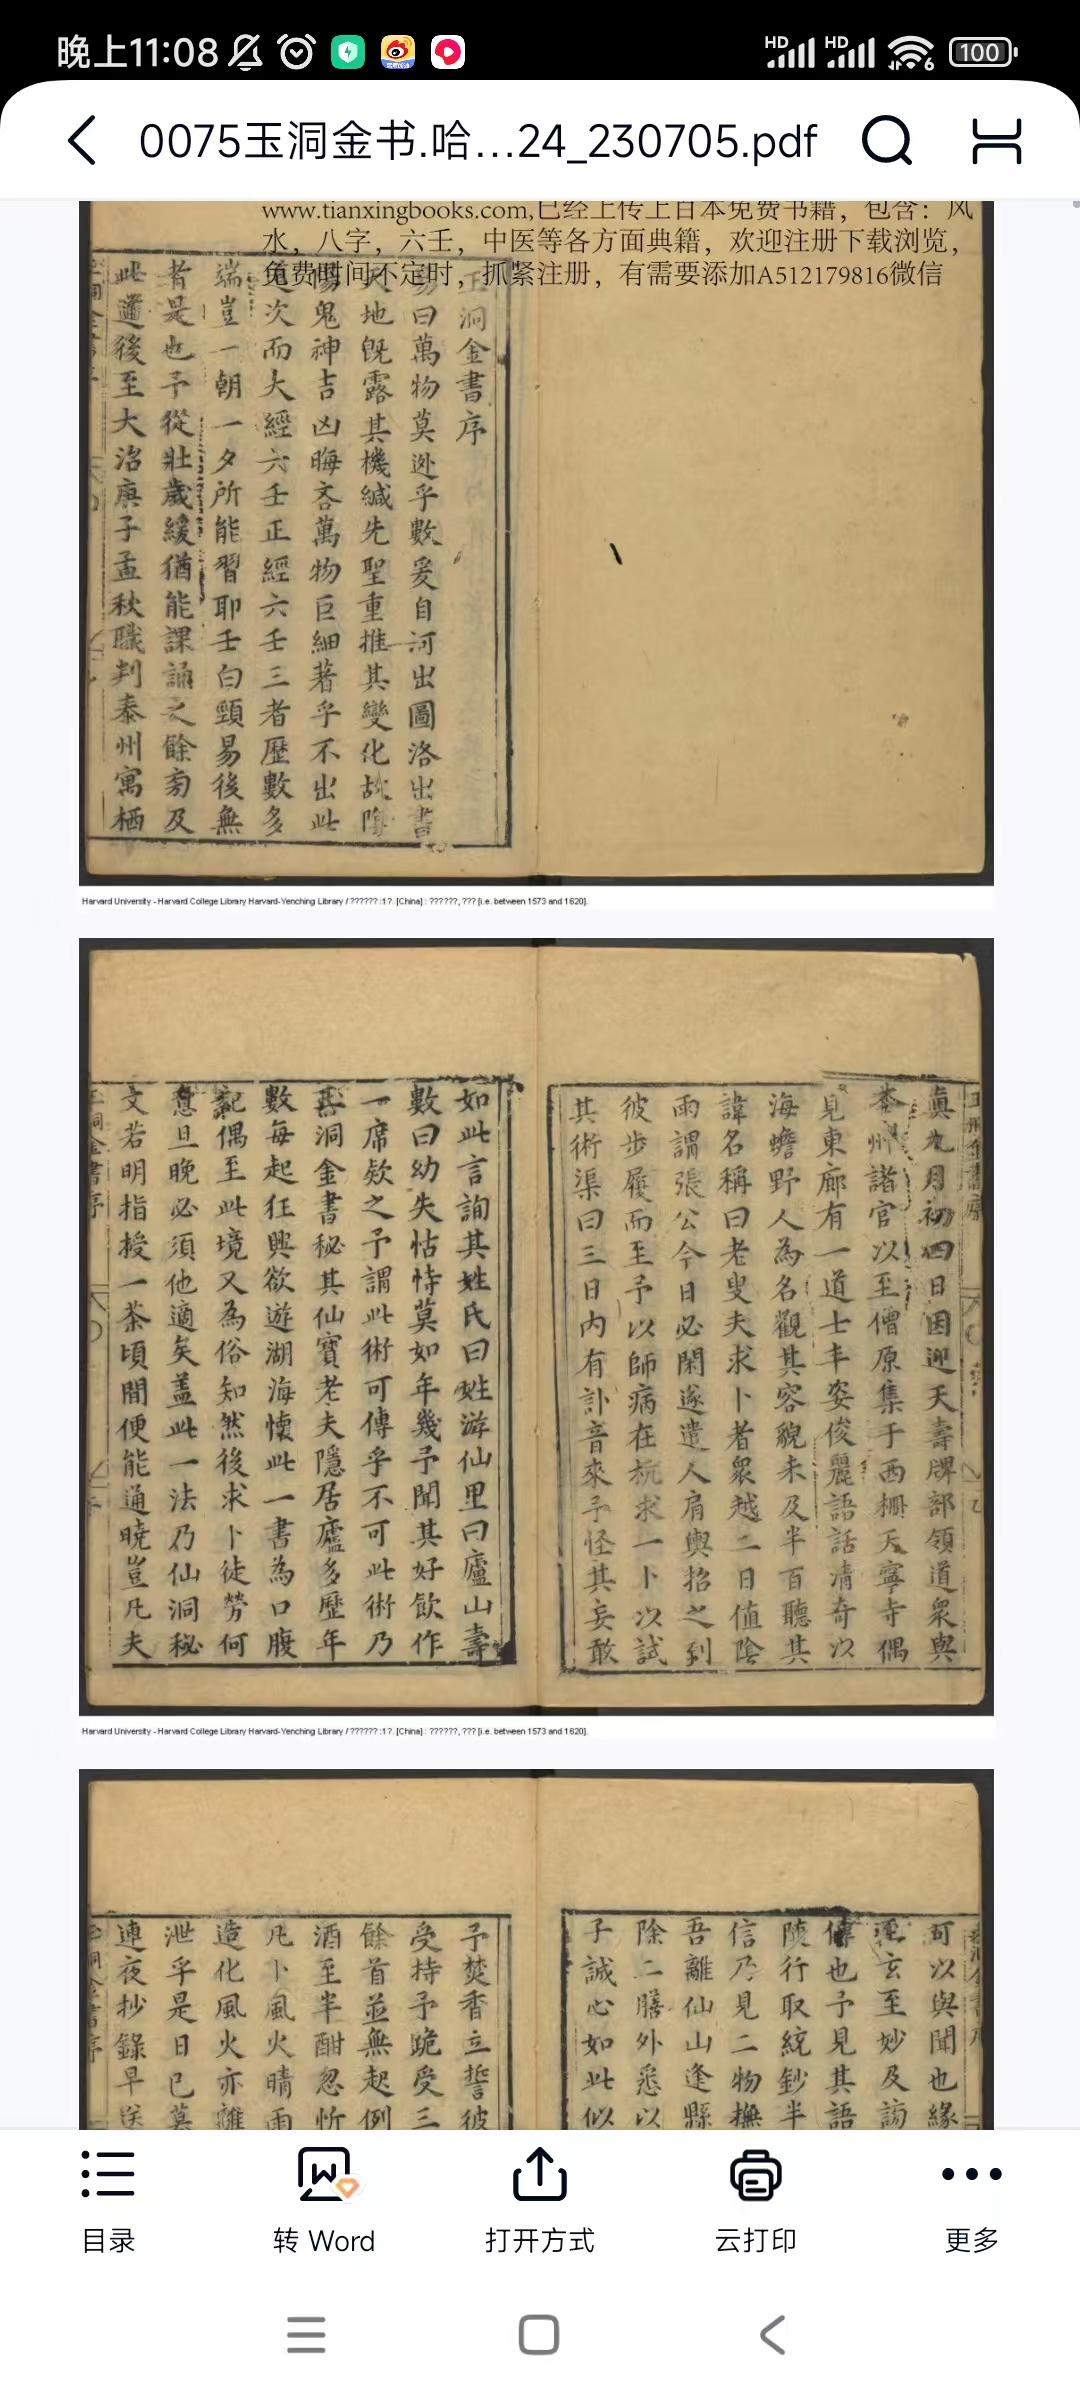 晚上11:08
HD HD 6 100
0075玉洞金书.哈...24_230705.pdf
www.tianxingbooks.com,已经上传上百本免费书籍，包含：风
水，八字，六壬，中医等各方面典籍，欢迎注册下载浏览，
免费时间不定时，抓紧注册，有需要添加A512179816微信
玉洞金書序
易曰萬物莫逃乎數爰自河出圖洛出書
天地既露其機緘先聖重推其變化故陰
陽鬼神吉凶晦吝萬物巨細著乎不出此
次而大經六壬正經六壬三者歷數多
端豈一朝一夕所能習耶壬白頸易後無
者是也予從壯歲緩猶能課誦之餘旁及
此邇後至大沿庚子孟秋職判泰州寓栖
Harvard University - Harvard College Library Harvard-Yenching Library / ?????? :1?. [China] : ??????, ??? [i.e. between 1573 and 1620].
真九月初四日因迎天壽牌部領道衆與
本州諸官以至僧原集于西柵天寧寺偶
見東廊有一道士丰姿俊麗語話清奇以
海蟾野人為名觀其容貌未及半百聽其
諱名稱曰老叟夫求卜者衆越二日值陰
雨謂張公今日必閑遂遣人肩輿招之到
彼步履而至予以師病在杭求一卜以試
其術渠曰三日内有訃音來予怪其妄敢
如此言詢其姓氏曰姓游仙里曰廬山壽
數曰幼失怙恃莫如年幾予聞其好飲作
一席欵之予謂此術可傳乎不可此術乃
洞金書秘其仙寶老夫隱居廬多歷年
數每起狂興欲遊湖海懷此一書為口腹
記偶至此境又為俗知然後求卜徒勞何
旦晚必須他適矣盖此一法乃仙洞秘
文若明指授一茶頃間便能通曉豈凡夫
玉洞金書序
Harvard University - Harvard College Library Harvard-Yenching Library / ?????? :1?. [China] : ??????, ??? [i.e. between 1573 and 1620].
可以與聞也緣
玄至妙及訪
傳也予見其語
陵行取綂鈔半
信乃見二物撫
吾離仙山逢縣
除二膳外悉以
子誠心如此似
予焚香立誓彼
受持予跪受三
餘首並無起例
酒至半酣忽忻
凡卜風火晴雨
造化風火亦離
泄乎是日已莫
連夜抄錄早送
玉洞金書序
目录
转 Word
打开方式
云打印
更多